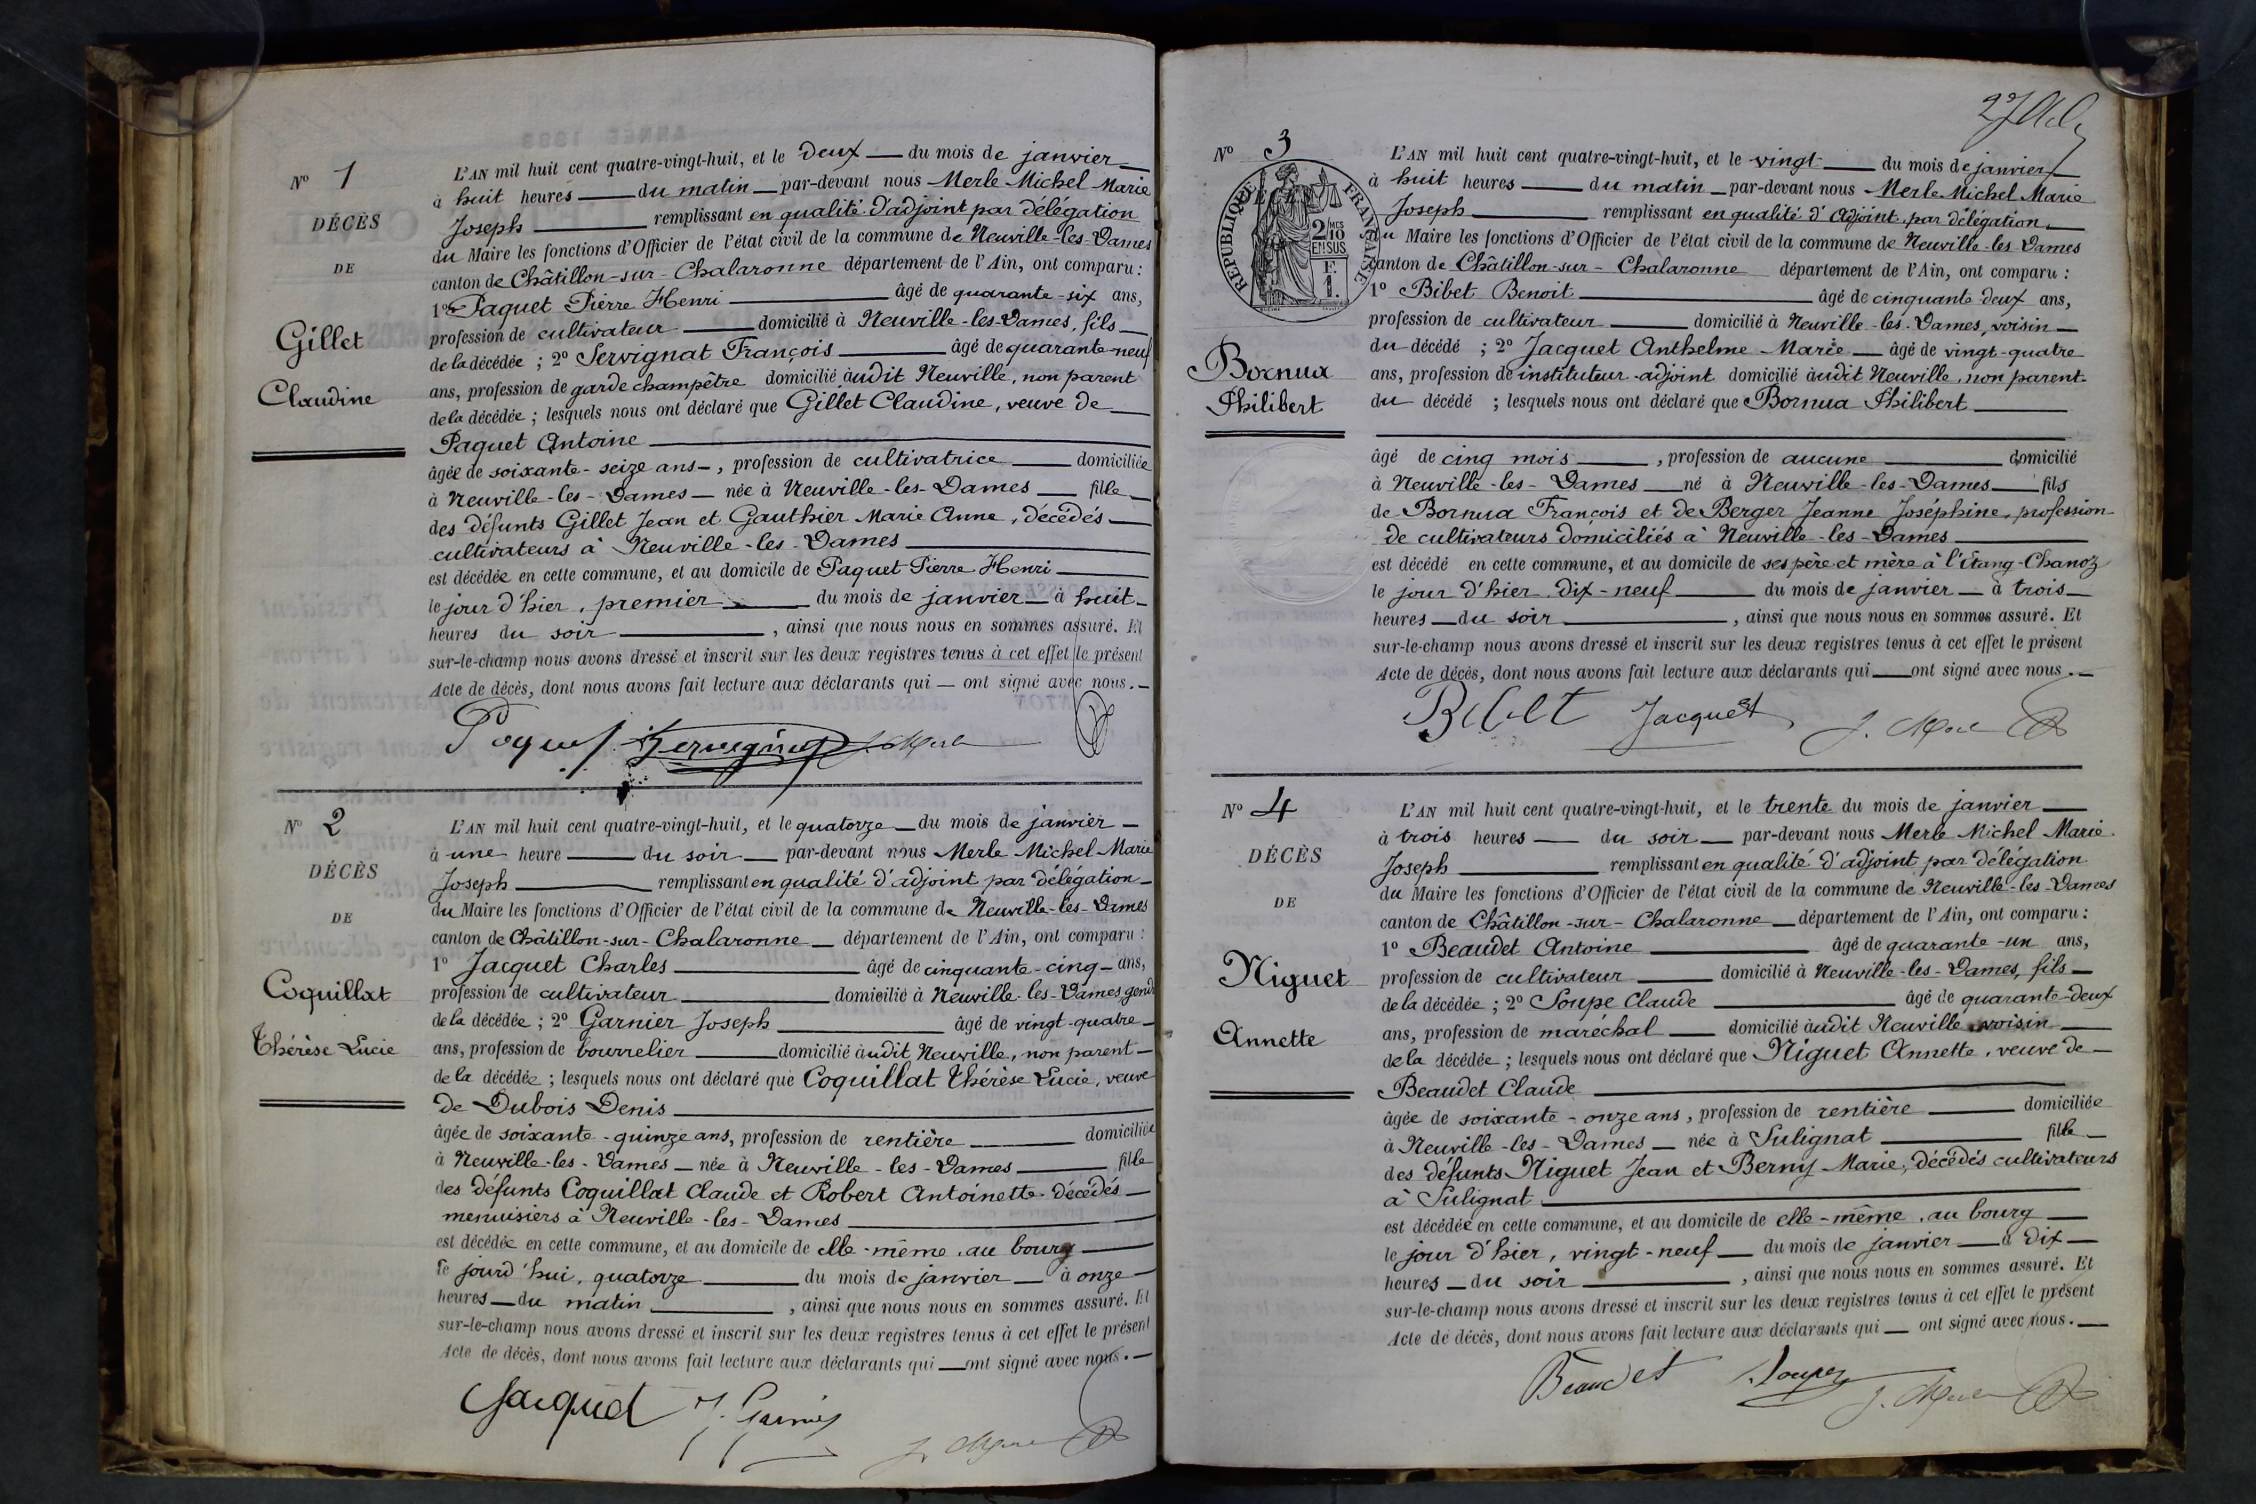 N° 1
DÉCÈS
DE
Gillet
Claudine
L'AN mil huit cent quatre-vingt-huit, et le deux du mois de janvier
à huit heures du matin par-devant nous Merle Michel Marie
Joseph remplissant en qualité d'adjoint par délégation
du Maire les fonctions d'Officier de l'état civil de la commune de Neuville-les-Dames
canton de Châtillon-sur-Chalaronne département de l'Ain, ont comparu :
1° Paquet Pierre Henri âgé de quarante-six ans,
profession de cultivateur domicilié à Neuville-les-Dames, fils
de la décédée ; 2° Servignat François âgé de quarante-neuf
ans, profession de garde champêtre domicilié audit Neuville, non parent
de la décédée ; lesquels nous ont déclaré que Gillet Claudine, veuve de
Paquet Antoine
âgée de soixante-seize ans, profession de cultivatrice domiciliée
à Neuville-les-Dames née à Neuville-les-Dames fille
des défunts Gillet Jean et Gauthier Marie Anne, décédés
cultivateurs à Neuville-les-Dames
est décédée en cette commune, et au domicile de Paquet Pierre Henri
le jour d'hier, premier du mois de janvier à huit
heures du soir, ainsi que nous nous en sommes assuré. Et
sur-le-champ nous avons dressé et inscrit sur les deux registres tenus à cet effet le présent
Acte de décès, dont nous avons fait lecture aux déclarants qui ont signé avec nous.
Paquet Servignat J. Merle
N° 2
DÉCÈS
DE
Coquillat
Thérèse Lucie
L'AN mil huit cent quatre-vingt-huit, et le quatorze du mois de janvier
à une heure du soir par-devant nous Merle Michel Marie
Joseph remplissant en qualité d'adjoint par délégation
du Maire les fonctions d'Officier de l'état civil de la commune de Neuville-les-Dames
canton de Châtillon-sur-Chalaronne département de l'Ain, ont comparu :
1° Jacquet Charles âgé de cinquante-cinq ans,
profession de cultivateur domicilié à Neuville-les-Dames gendre
de la décédée ; 2° Garnier Joseph âgé de vingt-quatre
ans, profession de bourrelier domicilié audit Neuville, non parent
de la décédée ; lesquels nous ont déclaré que Coquillat Thérèse Lucie, veuve
de Dubois Denis
âgée de soixante-quinze ans, profession de rentière domiciliée
à Neuville-les-Dames née à Neuville-les-Dames fille
des défunts Coquillat Claude et Robert Antoinette décédés
menuisiers à Neuville-les-Dames
est décédée en cette commune, et au domicile de elle-même, au bourg
le jourd'hui, quatorze du mois de janvier à onze
heures du matin, ainsi que nous nous en sommes assuré. Et
sur-le-champ nous avons dressé et inscrit sur les deux registres tenus à cet effet le présent
Acte de décès, dont nous avons fait lecture aux déclarants qui ont signé avec nous.
Jacquet J. Garnier J. Merle
N° 3
RÉPUBLIQUE FRANÇAISE
2 MES
10
EN SUS
F.
1.
Bornua
Philibert
L'AN mil huit cent quatre-vingt-huit, et le vingt du mois de janvier
à huit heures du matin par-devant nous Merle Michel Marie
Joseph remplissant en qualité d'adjoint par délégation
du Maire les fonctions d'Officier de l'état civil de la commune de Neuville-les-Dames
canton de Châtillon-sur-Chalaronne département de l'Ain, ont comparu :
1° Bibet Benoit âgé de cinquante deux ans,
profession de cultivateur domicilié à Neuville-les-Dames, voisin
du décédé ; 2° Jacquet Anthelme Marie âgé de vingt-quatre
ans, profession de instituteur-adjoint domicilié audit Neuville, non parent
du décédé ; lesquels nous ont déclaré que Bornua Philibert
âgé de cinq mois, profession de aucune domicilié
à Neuville-les-Dames né à Neuville-les-Dames fils
de Bornua François et de Berger Jeanne Joséphine, profession
de cultivateurs domiciliés à Neuville-les-Dames
est décédé en cette commune, et au domicile de ses père et mère à l'Etang-Chanoz
le jour d'hier dix-neuf du mois de janvier à trois
heures du soir, ainsi que nous nous en sommes assuré. Et
sur-le-champ nous avons dressé et inscrit sur les deux registres tenus à cet effet le présent
Acte de décès, dont nous avons fait lecture aux déclarants qui ont signé avec nous.
Bibet Jacquet J. Merle
N° 4
DÉCÈS
DE
Niguet
Annette
L'AN mil huit cent quatre-vingt-huit, et le trente du mois de janvier
à trois heures du soir par-devant nous Merle Michel Marie
Joseph remplissant en qualité d'adjoint par délégation
du Maire les fonctions d'Officier de l'état civil de la commune de Neuville-les-Dames
canton de Châtillon-sur-Chalaronne département de l'Ain, ont comparu :
1° Beaudet Antoine âgé de quarante-un ans,
profession de cultivateur domicilié à Neuville-les-Dames, fils
de la décédée ; 2° Soupe Claude âgé de quarante-deux
ans, profession de maréchal domicilié audit Neuville voisin
de la décédée ; lesquels nous ont déclaré que Niguet Annette, veuve de
Beaudet Claude
âgée de soixante-onze ans, profession de rentière domiciliée
à Neuville-les-Dames née à Sulignat fille
des défunts Niguet Jean et Berny Marie, décédés cultivateurs
à Sulignat
est décédée en cette commune, et au domicile de elle-même, au bourg
le jour d'hier, vingt-neuf du mois de janvier à dix
heures du soir, ainsi que nous nous en sommes assuré. Et
sur-le-champ nous avons dressé et inscrit sur les deux registres tenus à cet effet le présent
Acte de décès, dont nous avons fait lecture aux déclarants qui ont signé avec nous.
Beaudet Soupe J. Merle